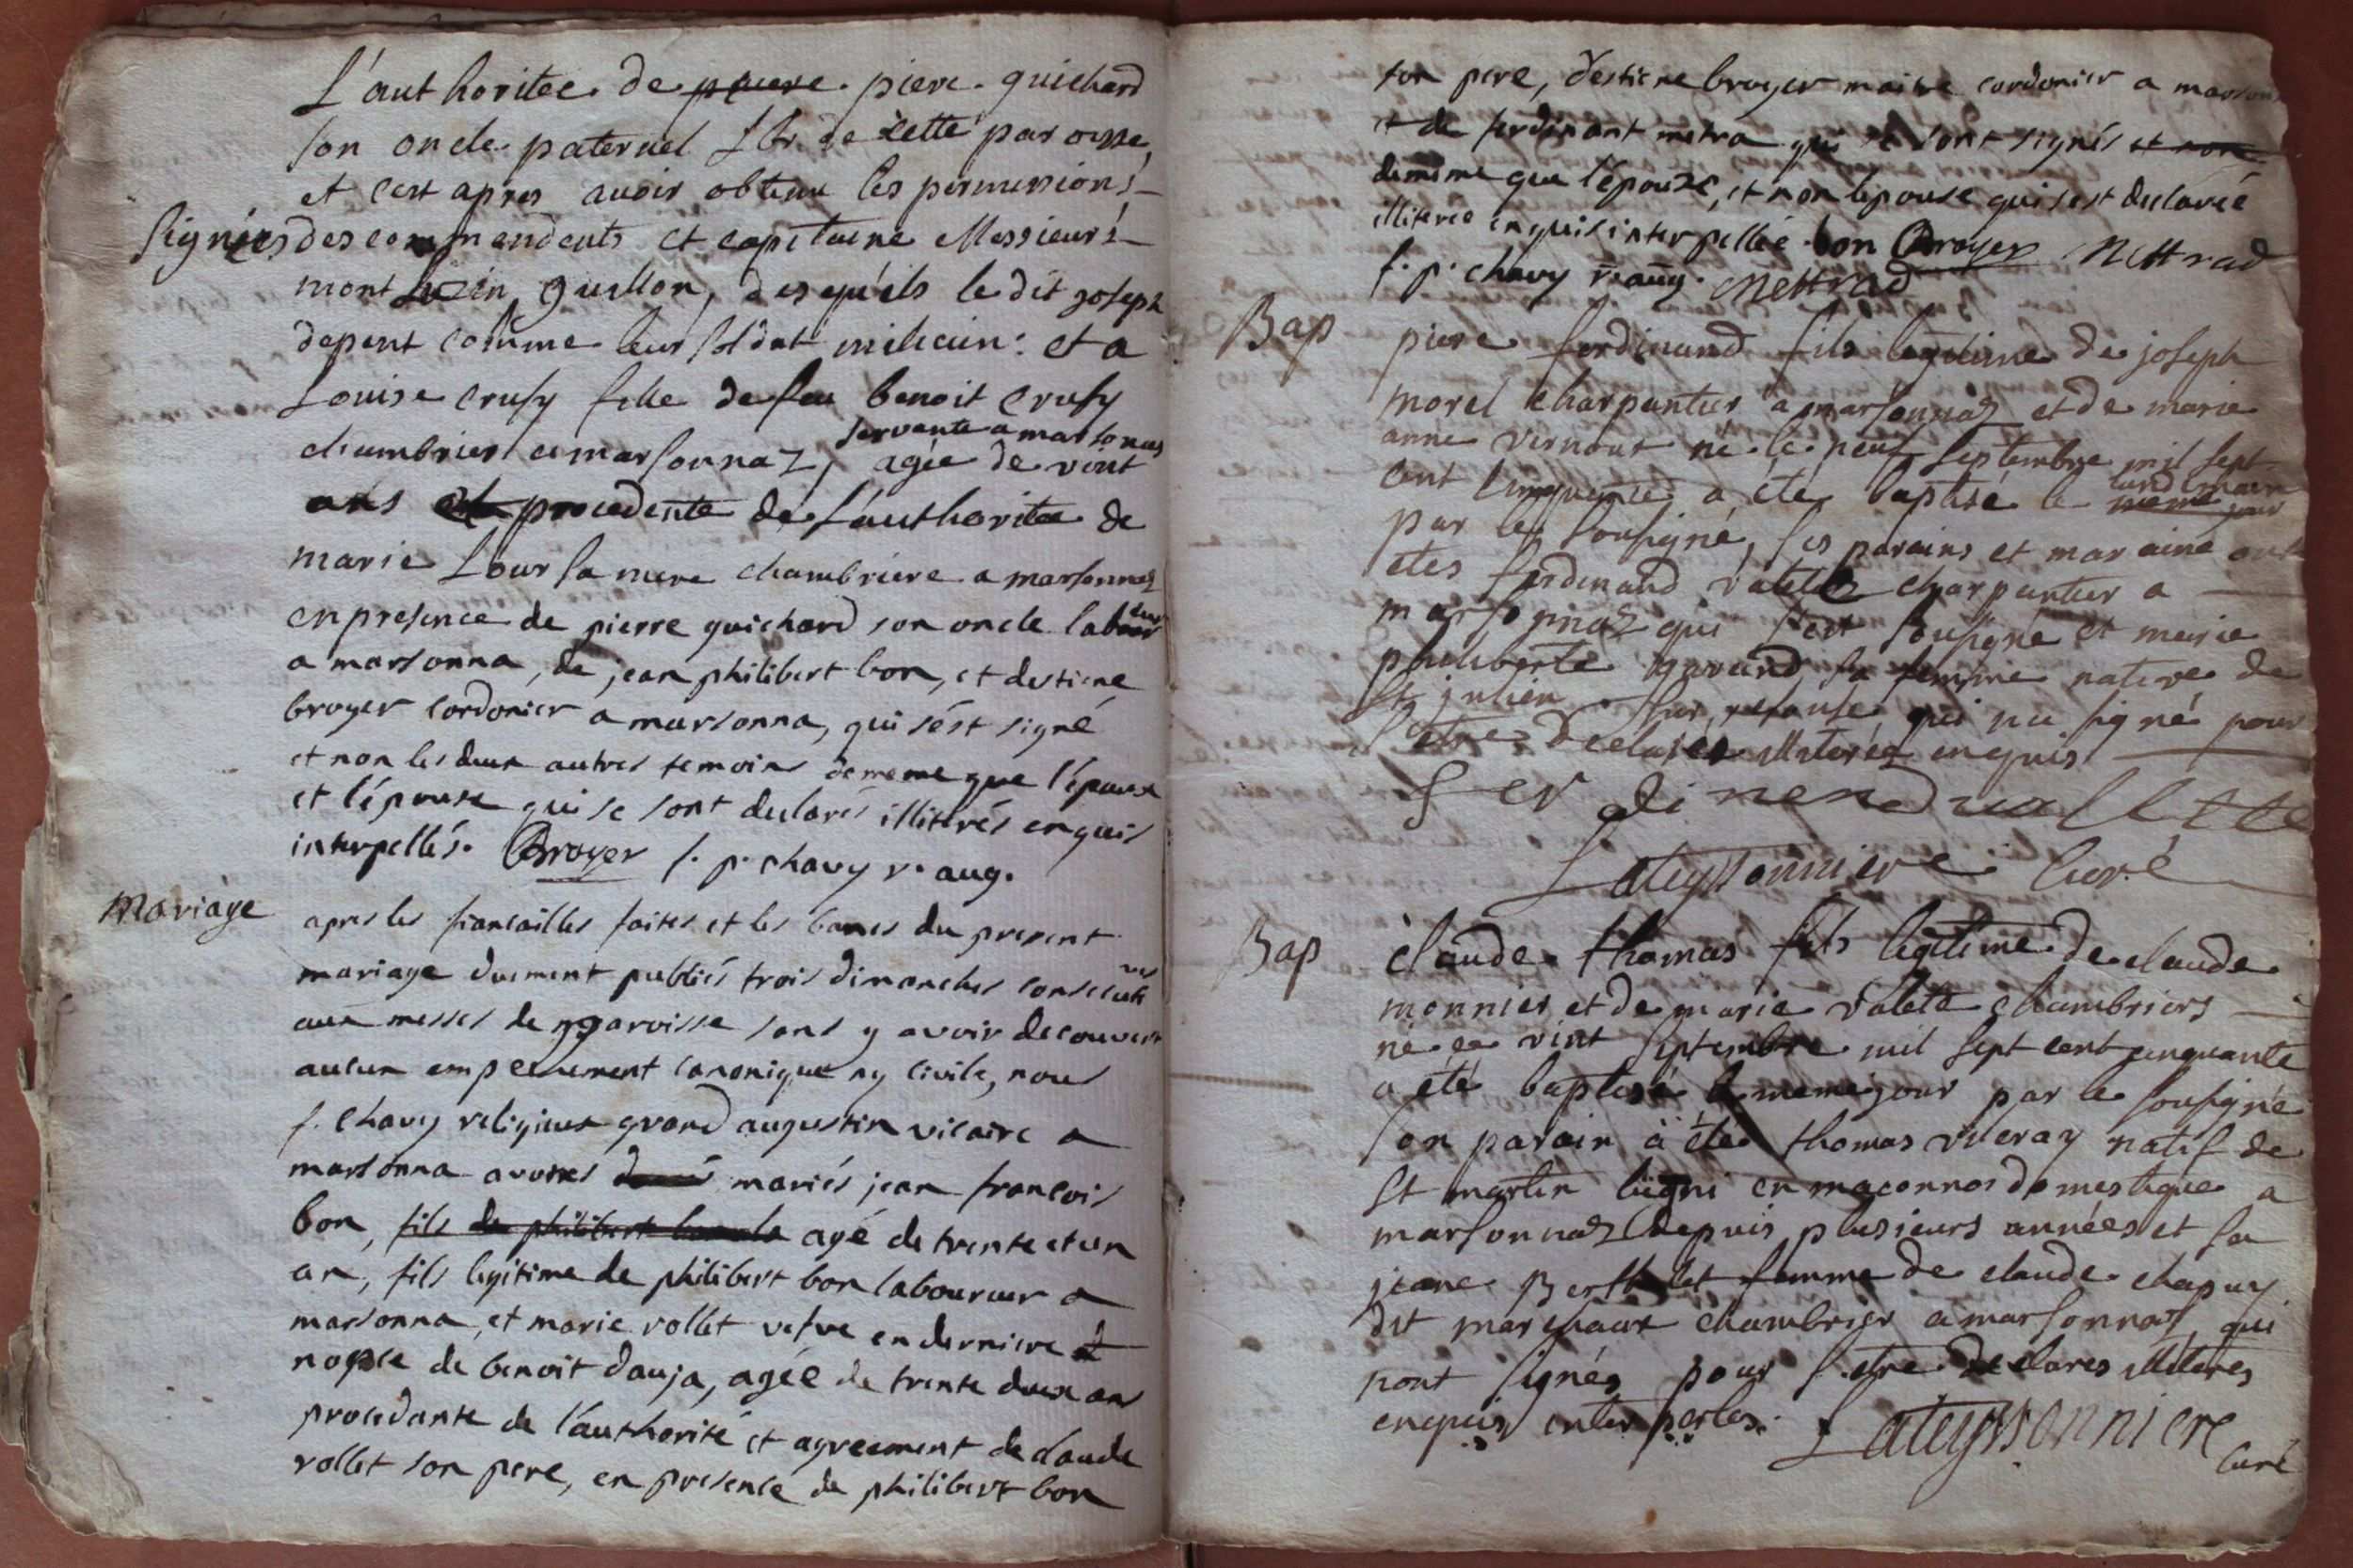 L'authoritée de piere guichard
son oncle paternel lbr de cette paroisse,
et c'est apres avoir obtenu les permissions
signées des commendents et capitaine Messieurs
mont guillon, desquéls le dit joseph
depent comme leur soldat milicien: et a
Louise crusy fille de feu benoit crusy
servante a marsonnas
chambrier a marsonnaz, agée de vint
ans procedente de l'authoritée de
marie Lour sa mere chambriere a marsonnaz
en presence de pierre guichard son oncle laboureur
a marsonna, de jean philibert bon, et d'estiene
broyer cordonier a marsonna, qui s'est signé
et non les deux autres temoins de meme que l'époux
et l'épouse qui se sont declarés illiterés enquis
interpellés. Broyer f. p. chavy r. aug.
Mariage
apres les fiancailles faites et les bancs du present
mariage duement publiés trois dimanches consecutives
aux messes de paroisse sans y avoir decouvert
aucun empechement canonique ny civile, nous
f. chavy religieux grand augustin vicaire a
marsonna avons mariés jean francois
bon, fils de philibert agé de trente et un
an, fils legitime de philibert bon laboureur a
marsonna, et marie vollet vefve en derniere
nopce de benoit dauja, agée de trente deux ans
procedante de l'authorité et agreement de claude
vollet son pere, en presence de philibert bon
son pere, d'estiene broyer maitre cordonier a marsona
et de ferdinant metra qui se sont signés et non
de meme que l'époux, et non l'epouse qui s'est declareé
illitereé enquis interpelleé bon Broyer Mettrad
f. p. chavy r. aug. Mettrad
Bap
piere ferdinand fils legitime de joseph
morel charpantier a marsonnaz et de marie
anne vernout né le neuf septembre mil sept
cent cinquante a été baptisé le lendemain
par le sousigné, ses parains et maraine ont
etes ferdinand valete charpantier a
marsonnaz qui s'est sousigné et marie
philiberte sa femme native de
st julien sur reisouse qui na signé pour
s'etre declareé illitereé enquis
fer dinend vallette
Lateyssonniere Curé
Bap
claude thomas fils legitime de claude
monnier et de marie valete chambriers
né le vint septembre mil sept cent cinquante
a été baptisé le meme jour par le sousigné
son parain a étée thomas natif de
st martin en maconnois domestique a
marsonnaz depuis plusieurs années et sa
jeane Berthelet femme de claude chapuy
dit marechaux chambrier a marsonnaz qui
nont signés pour s'etre declares illiteres
enquis interpeles. Lateyssonniere
Curé